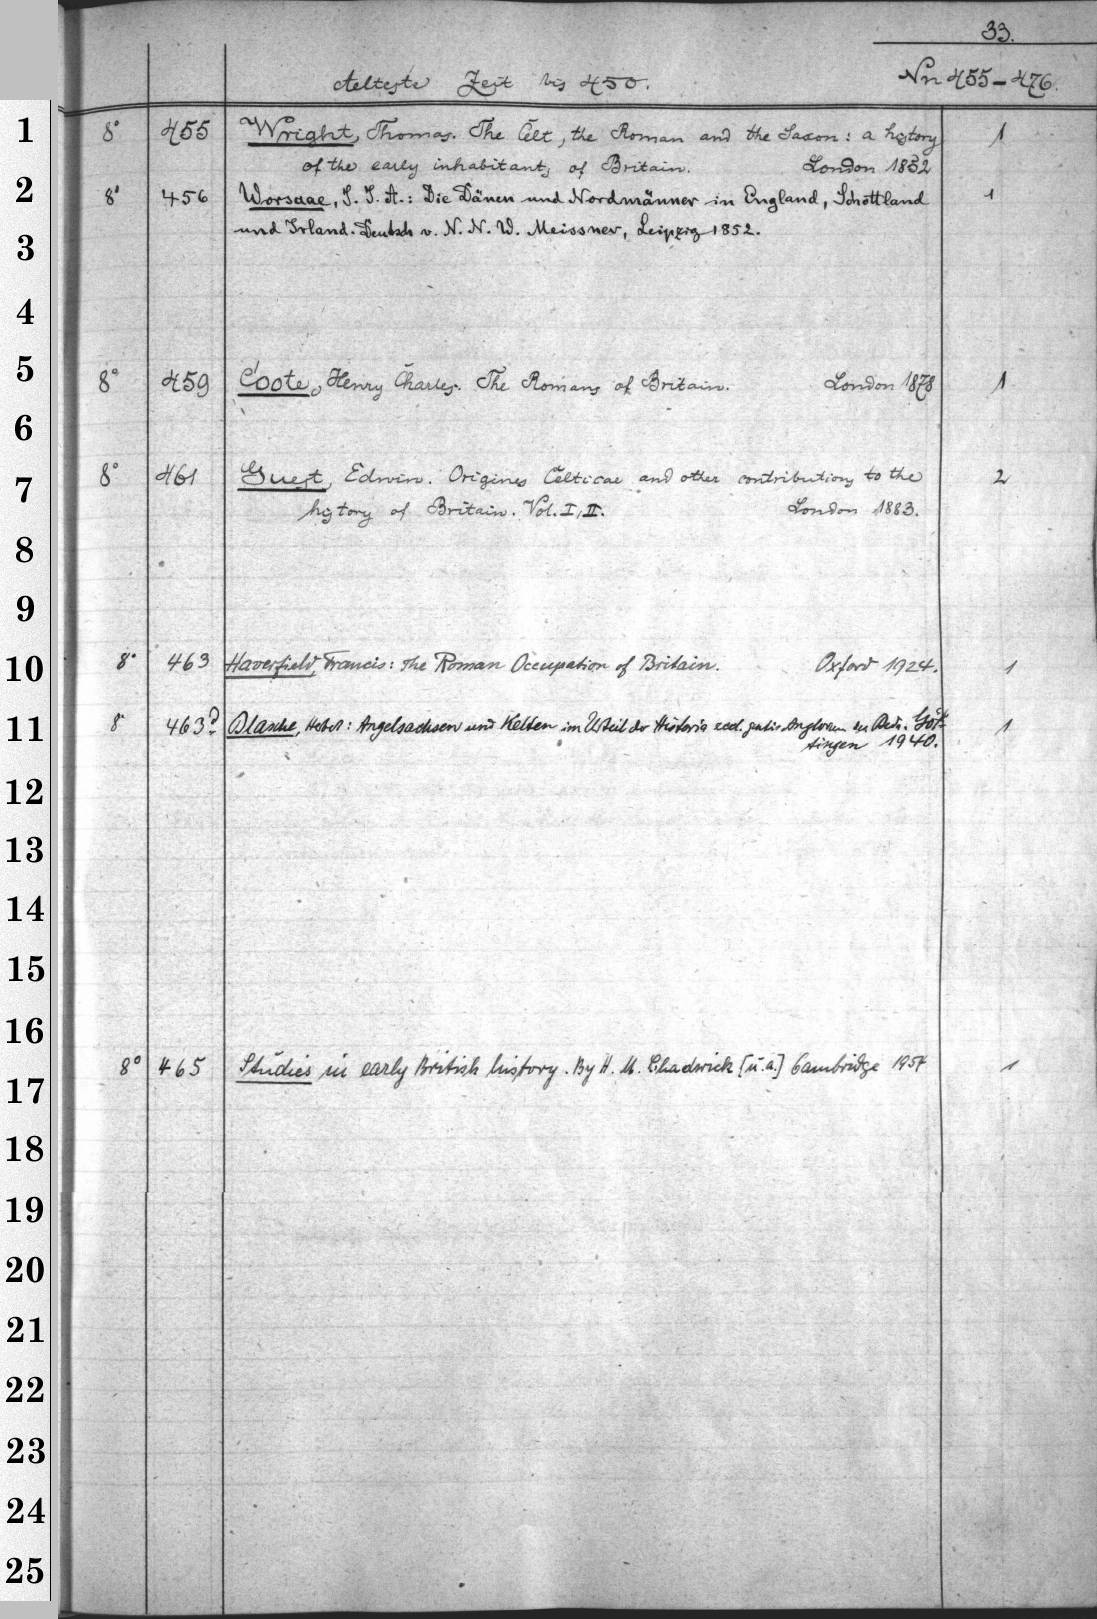 33.
Aelteste Zeit bis 450. Nrr 455-476.
1 8° 455 Wright, Thomas. The Celt, the Roman and the Saxon: a history 1
of the early inhabitants of Britain. London 1852
2 8° 456 Worsaae, J. J. A.: Die Dänen und Nordmänner in England, Schottland 1
und Irland. Deutsch v. N. N. W. Meissner, Leipzig 1852.
3
4
5 8° 459 Coote, Henry Charles. The Romans of Britain. London 1878 1
6
7 8° 461 Guest, Edwin. Origines Celticae and other contributions to the 2
history of Britain. Vol. I, II. London 1883.
8
9
10 8° 463 Haverfield, Francis: The Roman Occupation of Britain. Oxford 1924. 1
11 8° 463 Blasche, : Angelsachsen und Kelten im Urteil der Historia eccl. gentis Anglorum des Beda. Göt- 1
tingen 1940.
12
13
14
15
16
8° 465 Studies in early British history. By H. M. Chadwick [u.a.] Cambridge 1954 1
17
18
19
20
21
22
23
24
25